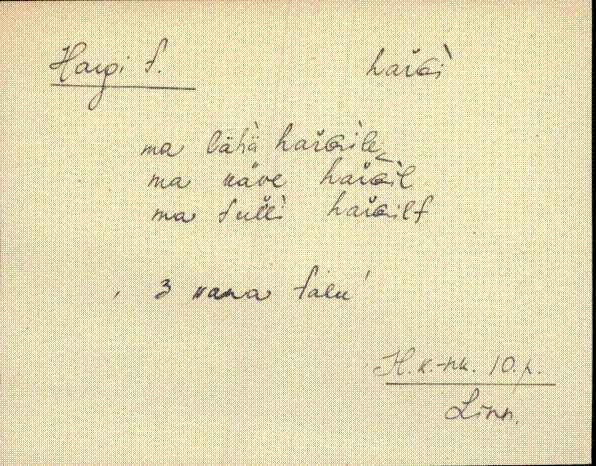 Hargi t. harGi
ma lähä harGile
ma käve harGil
ma tulli harGilt
3 vana talu
H. k.-nk. 10. p.
Linn.